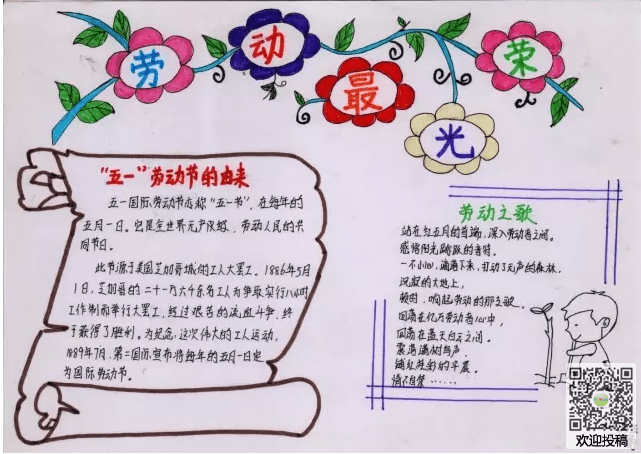 劳动最光荣
"五一"劳动节的由来
五一国际劳动节亦称"五一节",在每年的
五月一日。它是全世界无产阶级、劳动人民的共
同节日。
此节源于美国芝加哥城的工人大罢工。1886年5月
1日,芝加哥的二十一万六千余名工人为争取实行八小时
工作制而举行大罢工,经过艰苦的流血斗争,终
于获得了胜利。为纪念这次伟大的工人运动,
1889年7月,第二国际宣布将每年的五月一日定
为国际劳动节。
劳动之歌
站在红五月的首端,深入劳动者之间。
感悟阳光跳跃的音符。
一不小心,滴落下来,打动了无声的森林,
沉寂的大地上,
顿时,响起劳动的那支歌
回荡在亿万劳动者心中,
回荡在蓝天白云之间。
震落满树鸟声,
铺红胜利的
情不自禁······
欢迎投稿